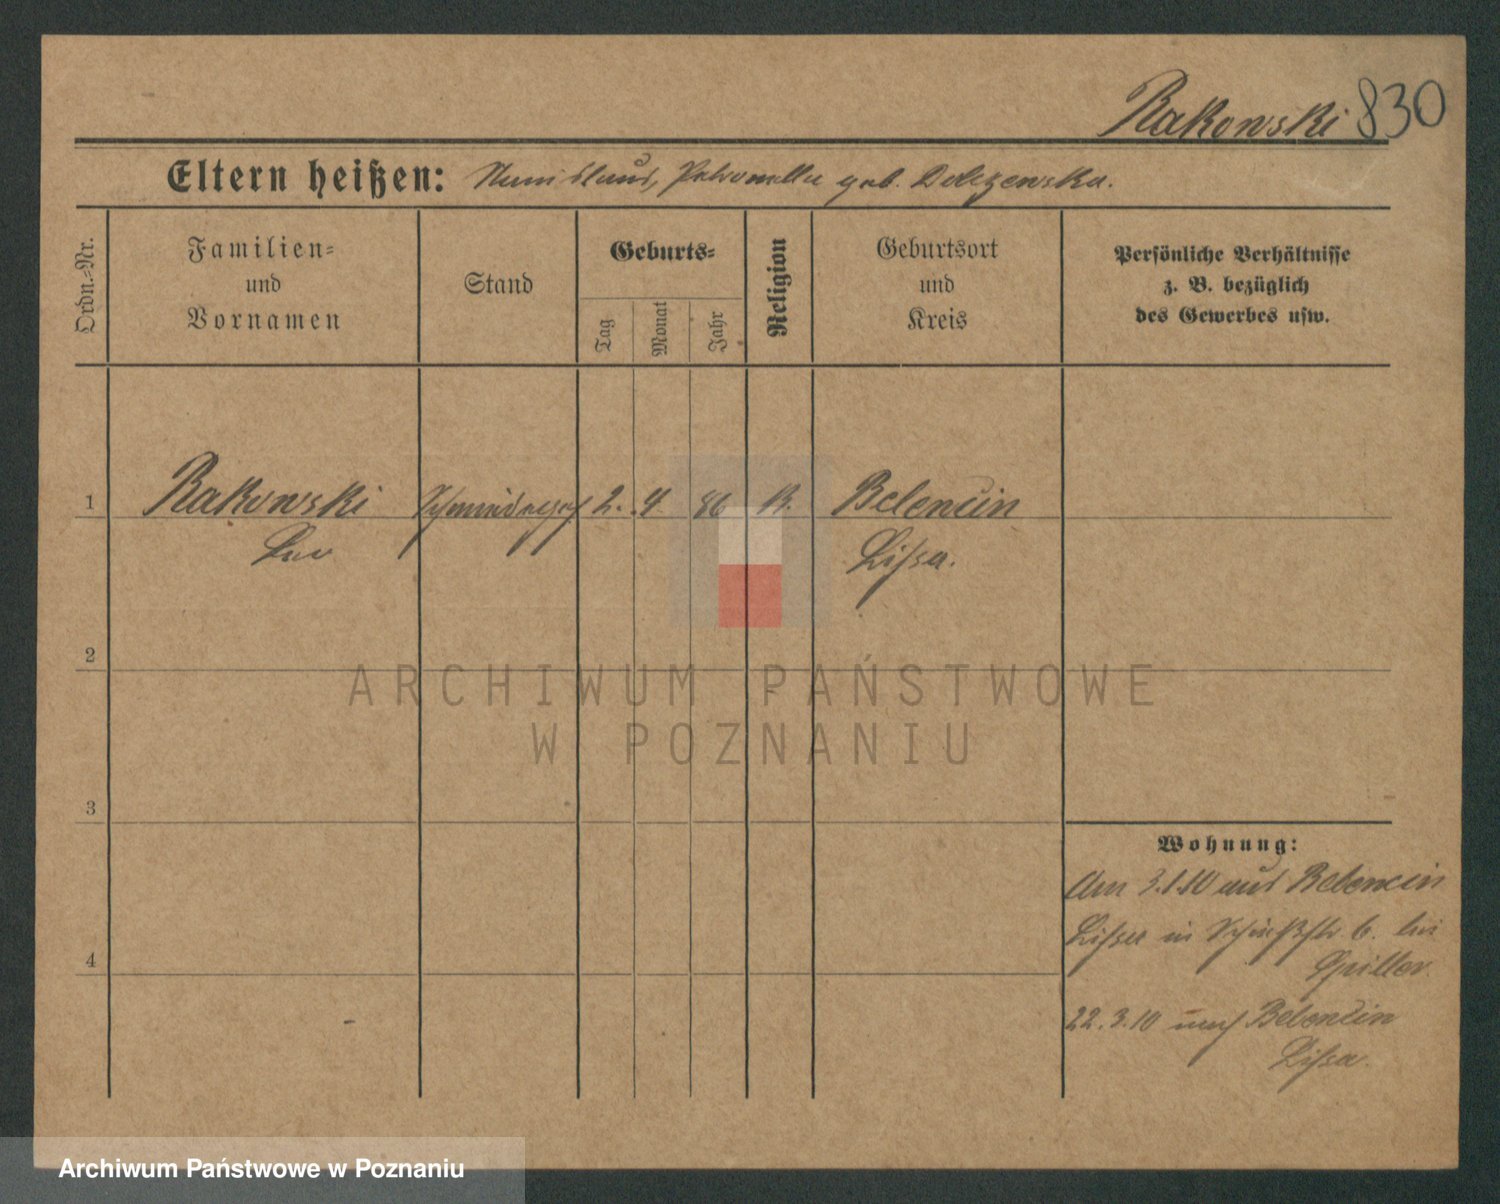 Rakowski 830
Eltern heißen: Stanislaus, Petronella geb. Dolczewska.
Ordn.-Nr.
Familien- und Vornamen
Stand
Geburts-
Tag
Monat
Jahr
Religion
Geburtsort und Kreis
Persönliche Verhältnisse
z. B. bezüglich
des Gewerbes usw.
1 Rakowski 2. 4 86 K. Belencin
Leo Lissa.
2
3
4
Wohnung:
Am 3.1.10 aus Belencin
Lissa in Schießstr 6. bei
Spiller.
22.3.10 nach Belencin
Lissa.
ARCHIWUM PAŃSTWOWE
W POZNANIU
Archiwum Państwowe w Poznaniu